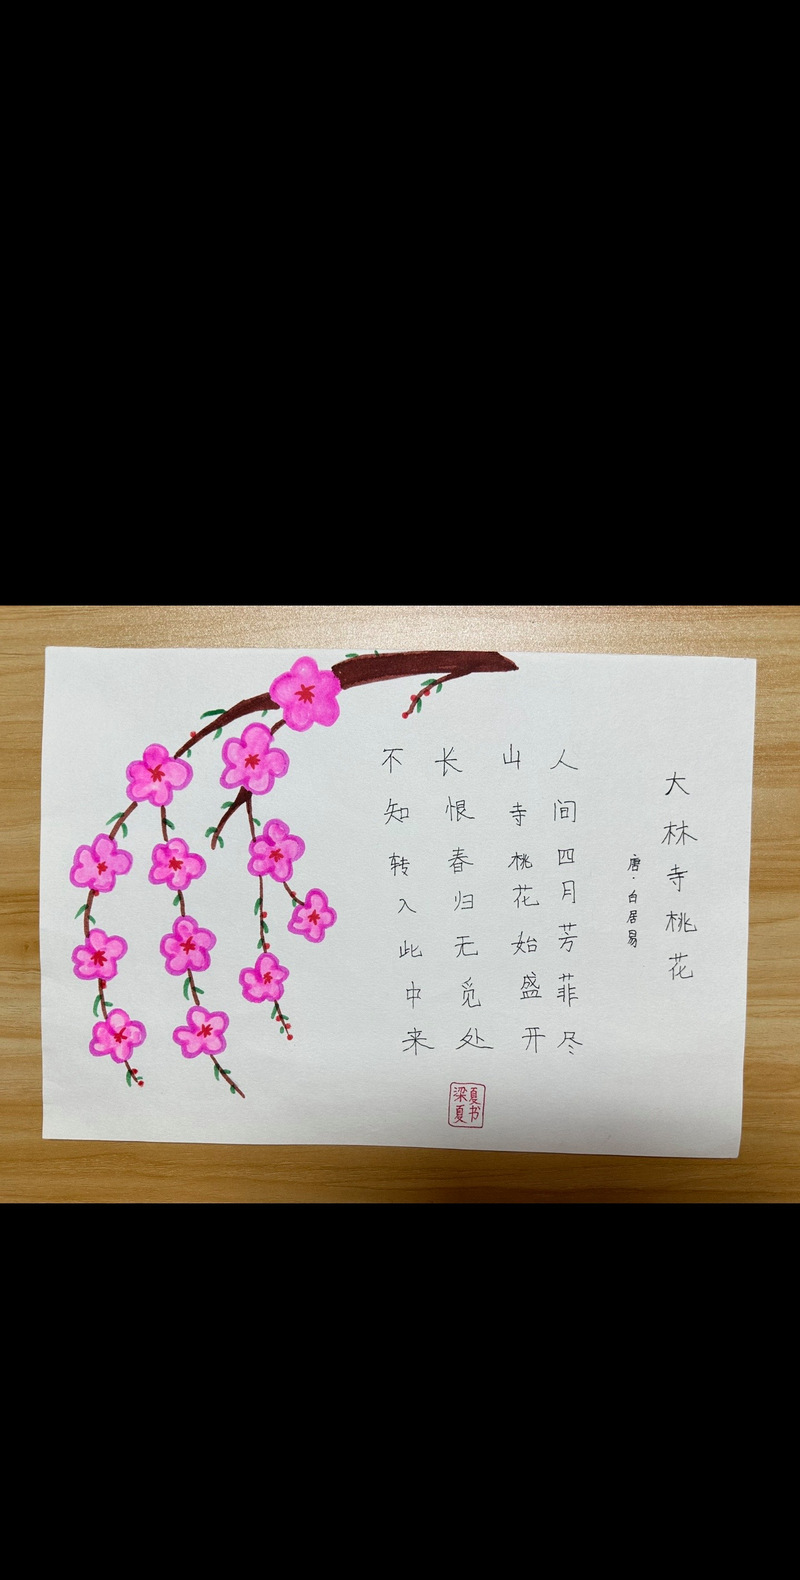 大林寺桃花
唐·白居易
人间四月芳菲尽
山寺桃花始盛开
长恨春归无觅处
不知转入此中来
夏书
梁夏